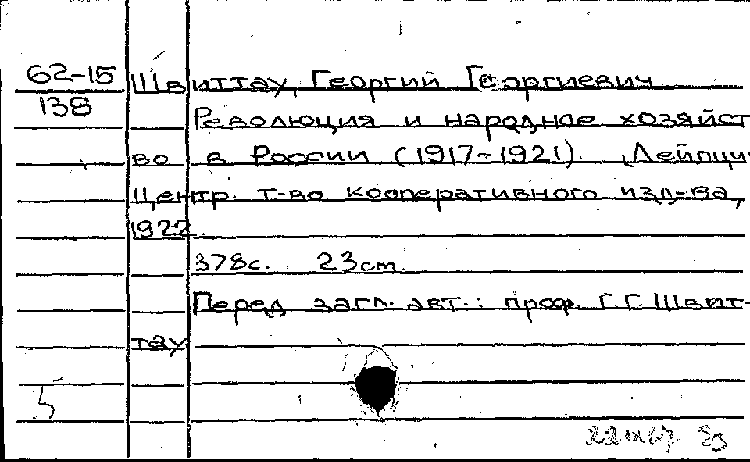 62-15
138
Швиттау, Георгий Георгиевич
Революция и народное хозяйст
во в России (1917-1921). Лейпци
Центр. т-во кооперативного изд-ва,
1922.
378с. 23см.
Перед загл. авт.: проф. Г.Г. Швит-
тау
5